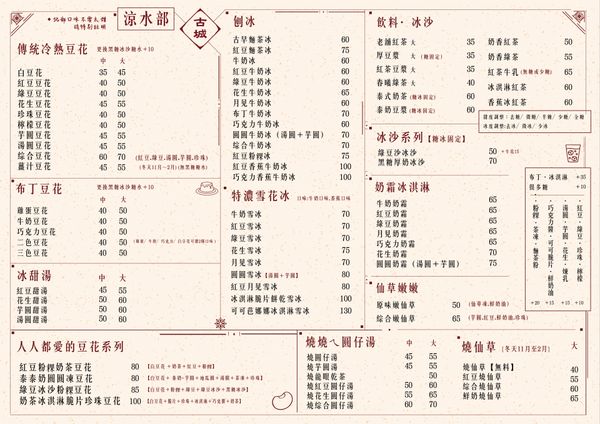 • 兒部口味不實太甜
請特別註明
涼水部
古城
傳統冷熱豆花 更換黑糖冰沙糖水+10
中 大
白豆花 35 45
紅豆豆花 40 50
綠豆豆花 40 50
花生豆花 45 55
珍珠豆花 40 50
檸檬豆花 40 50
芋圓豆花 45 55
湯圓豆花 45 55
綜合豆花 60 70 (紅豆,綠豆,湯圓,芋圓,珍珠)
薑汁豆花 45 55 (冬天11月~2月)(無黑糖糖水)
布丁豆花 更換黑糖冰沙糖水+10
中 大
雞蛋豆花 40 50
牛奶豆花 40 50
巧克力豆花 40 50
二色豆花 40 50
三色豆花 40 50
冰甜湯
中 大
紅豆甜湯 45 55
花生甜湯 50 60
芋圓甜湯 50 60
湯圓甜湯 50 60
刨冰
古早麵茶冰 60
紅豆麵茶冰 75
牛奶冰 60
紅豆牛奶冰 60
綠豆牛奶冰 60
花生牛奶冰 65
月見牛奶冰 65
布丁牛奶冰 70
巧克力牛奶冰 60
圓圓牛奶冰（湯圓＋芋圓） 70
綜合牛奶冰 70
紅豆粉粿冰 75
紅豆香蕉牛奶冰 75
巧克力香蕉牛奶冰 75
特濃雪花冰 口味/牛奶口味,茶蕉口味
牛奶雪冰 70
紅豆雪冰 70
綠豆雪冰 70
花生雪冰 75
月見雪冰 75
圓圓雪冰【湯圓＋芋圓】 80
紅豆月見雪冰 80
冰淇淋脆片餅乾雪冰 100
可可芭娜娜冰淇淋雪冰 130
飲料·冰沙
老舖紅茶 大 35
厚豆漿 大 (糖固定) 35
紅茶豆漿 大 35
春曦綠茶 大 40
泰式奶茶 (糖冰固定) 60
泰奶豆漿 (糖冰固定) 60
奶香紅茶 50
奶香綠茶 55
紅茶牛乳 (無糖或少糖) 65
冰淇淋紅茶 60
香蕉冰紅茶 60
甜度調整：去糖/微糖/半糖/少糖/全糖
冰度調整：去冰/微冰/少冰
冰沙系列【糖冰固定】
綠豆沙冰沙 50 +牛花15
黑糖厚奶冰沙 70
奶霜冰淇淋
牛奶奶霜 65
紅豆奶霜 65
綠豆奶霜 65
月見奶霜 65
巧克力奶霜 65
花生奶霜 70
圓圓奶霜（湯圓＋芋圓） 70
仙草嫩嫩
原味嫩仙草 50 (仙草凍,鮮奶油)
綜合嫩仙草 65 (芋圓,紅豆,鮮奶油,珍珠)
布丁·冰淇淋 +35
很多糖 +10
·紅豆·綠豆·珍珠 +10
·湯圓·芋圓·花生·煉乳 +15
·巧克力醬·可可脆片·鮮奶油 +15
·粉粿·茶凍·麵茶粉 +20
人人都愛的豆花系列
紅豆粉粿奶茶豆花 80 【白豆花＋奶茶＋紅豆＋粉粿】
泰泰奶圓圓凍豆花 80 【白豆花＋泰奶＋芋圓＋地瓜圓＋湯圓＋茶凍＋珍珠】
綠豆冰沙粉粿豆花 85 【白豆花＋粉粿＋綠豆＋綠豆冰沙＋黑糖冰沙】
奶茶冰淇淋脆片珍珠豆花 100 【白豆花＋脆片＋珍珠＋冰淇淋＋巧克醬＋奶茶】
燒燒ㄟ圓仔湯
中 大
燒圓仔湯 45 55
燒芋圓湯 45 55
燒龍眼乾茶 50
燒紅豆圓仔湯 50 60
燒花生圓仔湯 55 65
燒綜合圓仔湯 60 70
燒仙草 (冬天11月至2月) 大
燒仙草【無料】 40
燒紅豆仙草 55
燒綜合仙草 65
鮮奶燒仙草 65